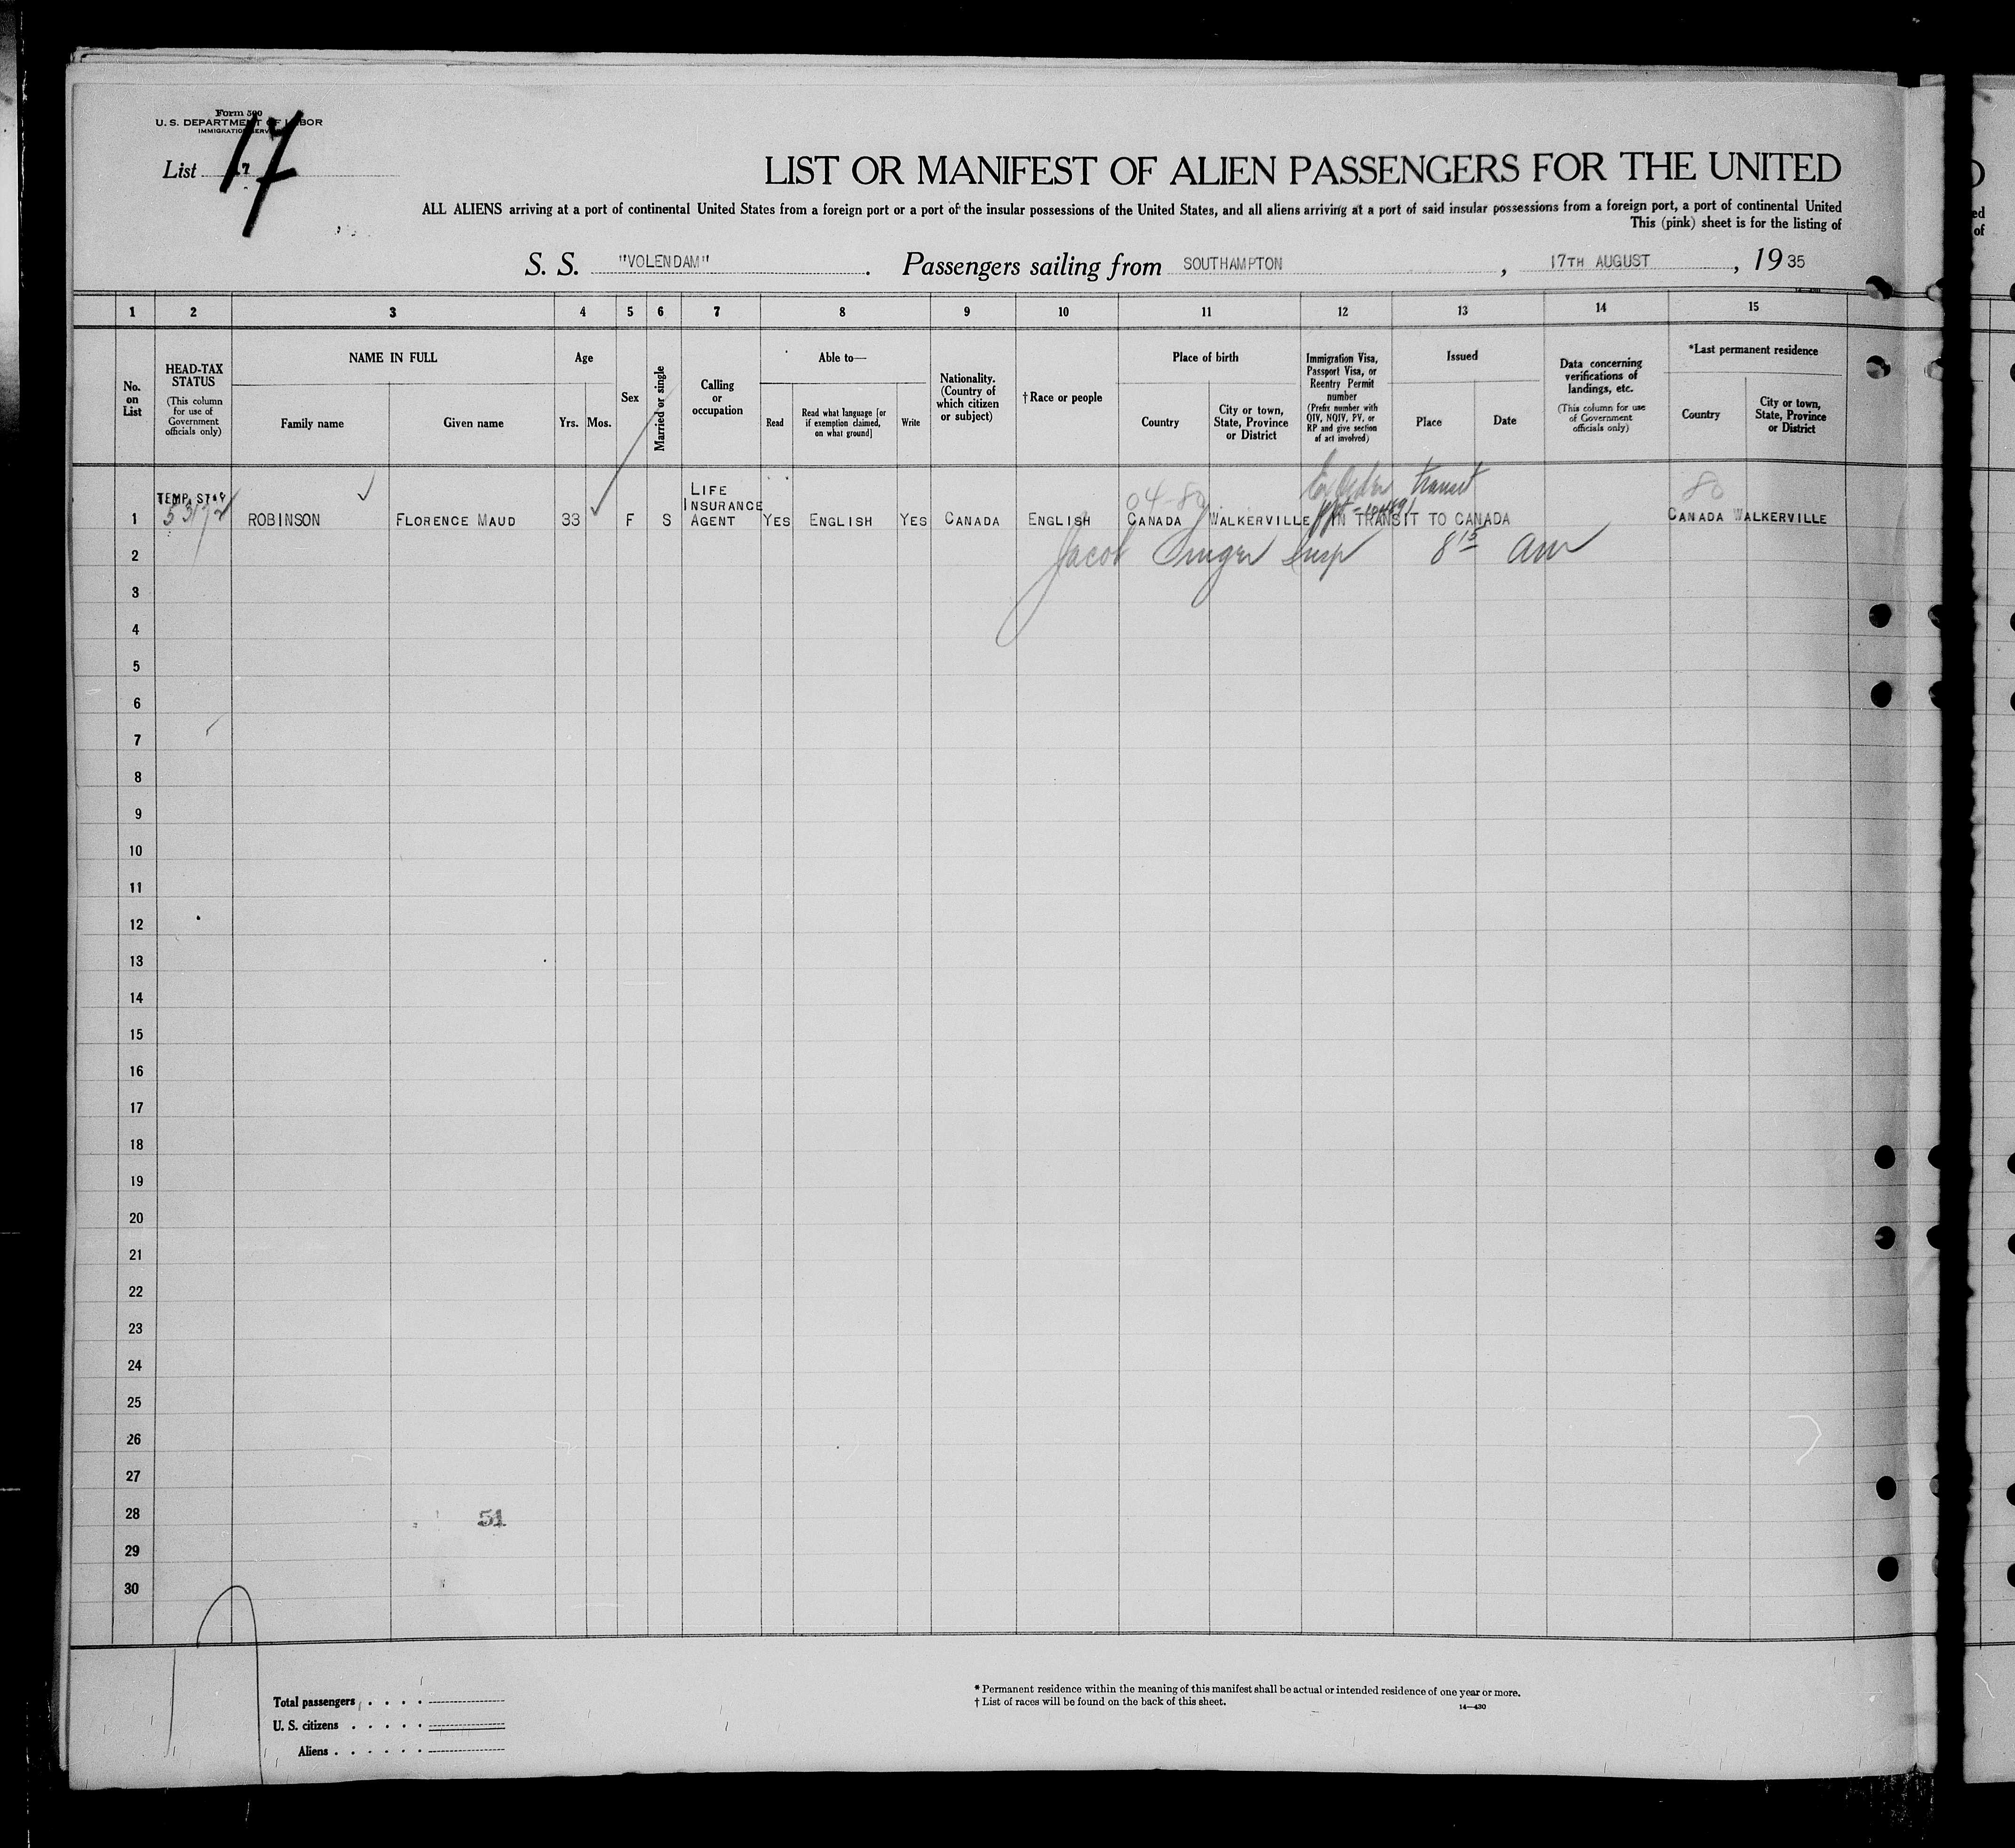 Form 500
U. S. DEPARTMENT OF LABOR
IMMIGRATION SERVICE
List 17
17
LIST OR MANIFEST OF ALIEN PASSENGERS FOR THE UNITED
ALL ALIENS arriving at a port of continental United States from a foreign port or a port of the insular possessions of the United States, and all aliens arriving at a port of said insular possessions from a foreign port, a port of continental United
This (pink) sheet is for the listing of
S. S. "VOLENDAM". Passengers sailing from SOUTHAMPTON, 17TH AUGUST, 1935
1 2 3 4 5 6 7 8 9 10 11 12 13 14 15
No. on List
HEAD-TAX STATUS (This column for use of Government officials only)
NAME IN FULL
Family name
Given name
Age
Yrs. Mos.
Sex
Married or single
Calling or occupation
Able to—
Read
Read what language [or if exemption claimed, on what ground]
Write
Nationality. (Country of which citizen or subject)
†Race or people
Place of birth
Country
City or town, State, Province or District
Immigration Visa, Passport Visa, or Reentry Permit number (Prefix number with QIV, NQIV, PV, or RP and give section of act involved)
Issued
Place
Date
Data concerning verifications of landings, etc. (This column for use of Government officials only)
*Last permanent residence
Country
City or town, State, Province or District
transit
04-80
80
TEMP. STAY
1 ROBINSON FLORENCE MAUD 33 F S LIFE INSURANCE AGENT YES ENGLISH YES CANADA ENGLISH CANADA WALKERVILLE IN TRANSIT TO CANADA CANADA WALKERVILLE
Jacob Singer Insp 8 15 am
2
3
4
5
6
7
8
9
10
11
12
13
14
15
16
17
18
19
20
21
22
23
24
25
26
27
28
51
29
30
Total passengers
U. S. citizens
Aliens
* Permanent residence within the meaning of this manifest shall be actual or intended residence of one year or more.
† List of races will be found on the back of this sheet.
14—430